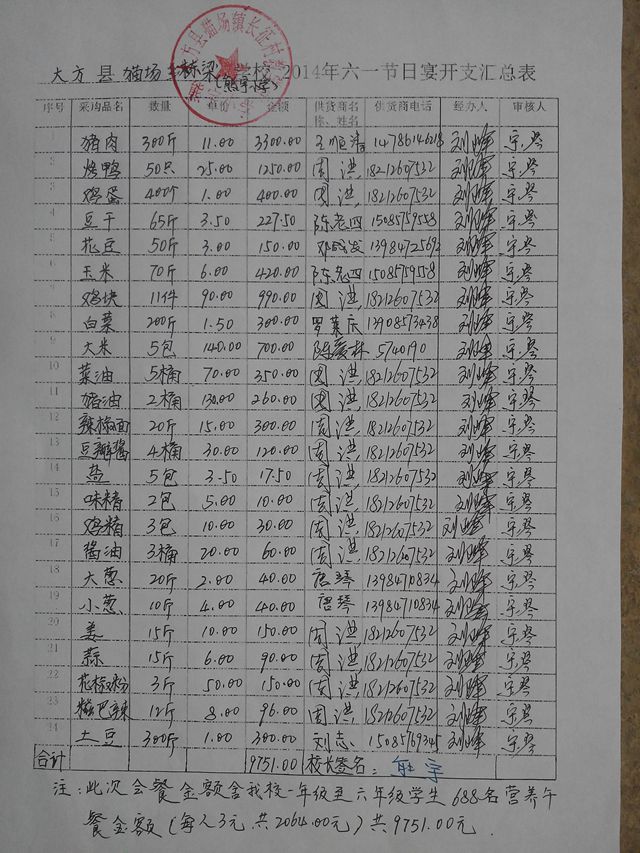 大方县猫场 栋梁 学校 2014年六一节日宴开支汇总表
(熊宇小学)
方县猫场镇长征村
序号 采购品名 数量 单价 金额 供货商名称、姓名 供货商电话 经办人 审核人
1 猪肉 300斤 11.00 3300.00 14786146218 刘峰 宋琴
2 烤鸭 50只 25.00 1250.00 周洪 18212607532 刘峰 宋琴
3 鸡蛋 400个 1.00 400.00 周洪 18212607532 刘峰 宋琴
4 豆干 65斤 3.50 227.50 陈老四 15085759558 刘峰 宋琴
5 花豆 50斤 3.00 150.00 13984725692 刘峰 宋琴
6 玉米 70斤 6.00 420.00 陈老四 15085759558 刘峰 宋琴
7 鸡块 11件 90.00 990.00 周洪 18212607532 刘峰 宋琴
8 白菜 200斤 1.50 300.00 罗荣庆 13908573438 刘峰 宋琴
9 大米 5包 140.00 700.00 陈庆林 5740190 刘峰 宋琴
10 菜油 5桶 70.00 350.00 周洪 18212607532 刘峰 宋琴
11 猪油 2桶 130.00 260.00 周洪 18212607532 刘峰 宋琴
12 辣椒面 20斤 15.00 300.00 周洪 18212607532 刘峰 宋琴
13 豆瓣酱 4桶 30.00 120.00 周洪 18212607532 刘峰 宋琴
14 盐 5包 3.50 17.50 周洪 18212607532 刘峰 宋琴
15 味精 2包 5.00 10.00 周洪 18212607532 刘峰 宋琴
16 鸡精 3包 10.00 30.00 周洪 18212607532 刘峰 宋琴
17 酱油 3桶 20.00 60.00 周洪 18212607532 刘峰 宋琴
18 大葱 20斤 2.00 40.00 唐琴 13984710834 刘峰 宋琴
19 小葱 10斤 4.00 40.00 唐琴 13984710834 刘峰 宋琴
20 姜 15斤 10.00 150.00 周洪 18212607532 刘峰 宋琴
21 蒜 15斤 6.00 90.00 周洪 18212607532 刘峰 宋琴
22 花椒粉 3斤 50.00 150.00 周洪 18212607532 刘峰 宋琴
23 糍粑辣 12斤 8.00 96.00 周洪 18212607532 刘峰 宋琴
24 土豆 300斤 1.00 300.00 刘志 15085769345 刘峰 宋琴
合计 9751.00 校长签名: 熊宇
注:此次会餐金额含我校一年级至六年级学生688名营养午
餐金额(每人3元 共2064.00元)共9751.00元.